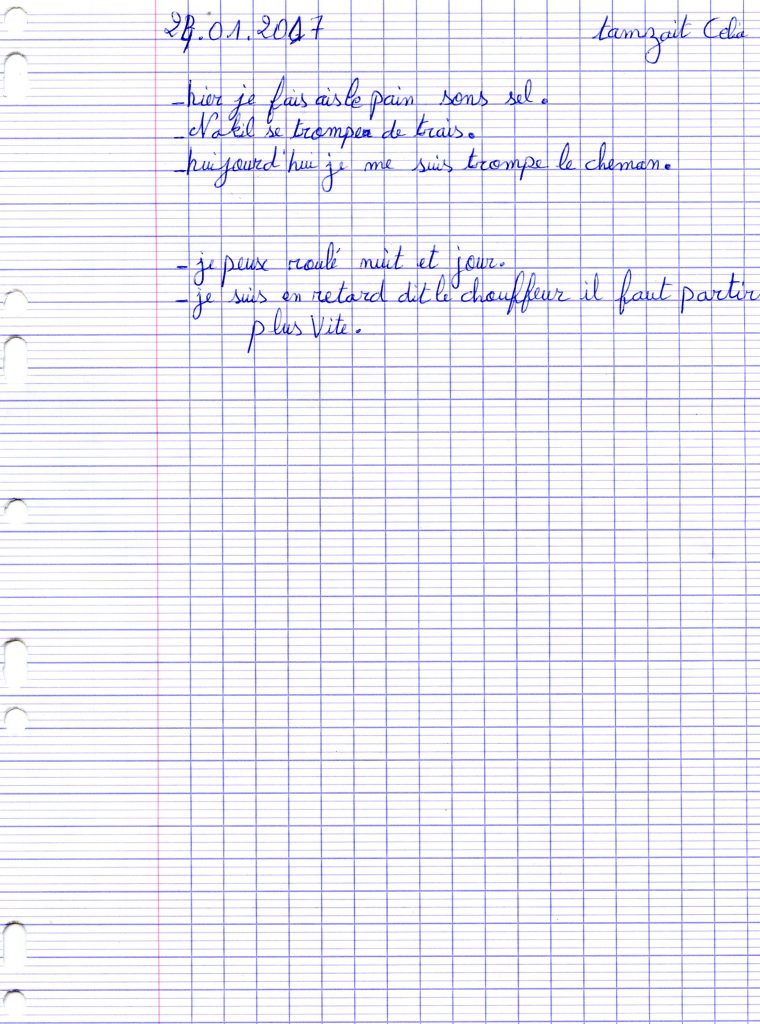 24.01.2017 tamzait Celia
-hier je fais ais le pain sons sel.
-Nakil se tromper de trais.
-hujourd'hui je me suis trompe le cheman.
- je peux roulé nuit et jour.
- je suis en retard dit le chouffeur il faut partir
plus Vite.